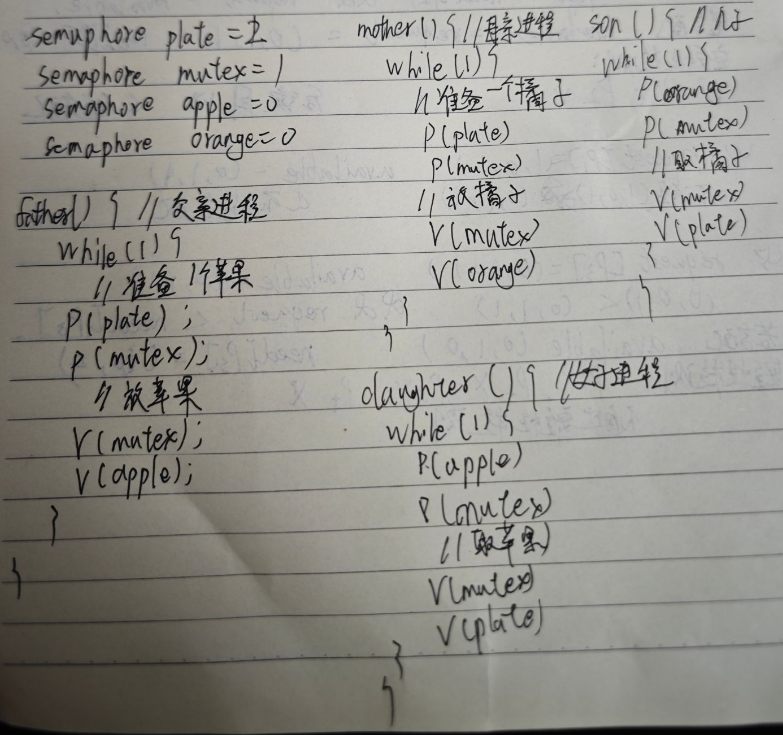 semaphore plate = 2
semaphore mutex = 1
semaphore apple = 0
semaphore orange = 0
father() { // 父亲进程
while(1) {
// 准备1个苹果
P(plate);
P(mutex);
// 放苹果
V(mutex);
V(apple);
}
}
mother() { // 母亲进程
while(1) {
// 准备一个橘子
P(plate)
P(mutex)
// 放橘子
V(mutex)
V(orange)
}
}
son() { // 儿子
while(1) {
P(orange)
P(mutex)
// 取橘子
V(mutex)
V(plate)
}
}
daughter() { // 女儿进程
while(1) {
P(apple)
P(mutex)
// 取苹果
V(mutex)
V(plate)
}
}